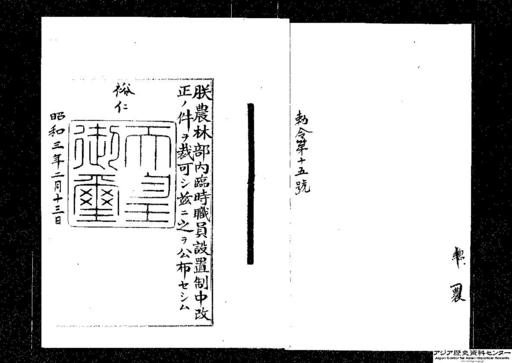 勅令第十五號
朕農林部內臨時職員設置制中改
正ノ件ヲ裁可シ玆ニ之ヲ公布セシム
裕仁
天皇御璽
昭和三年二月十三日
アジア歴史資料センター
Japan Center for Asian Historical Records